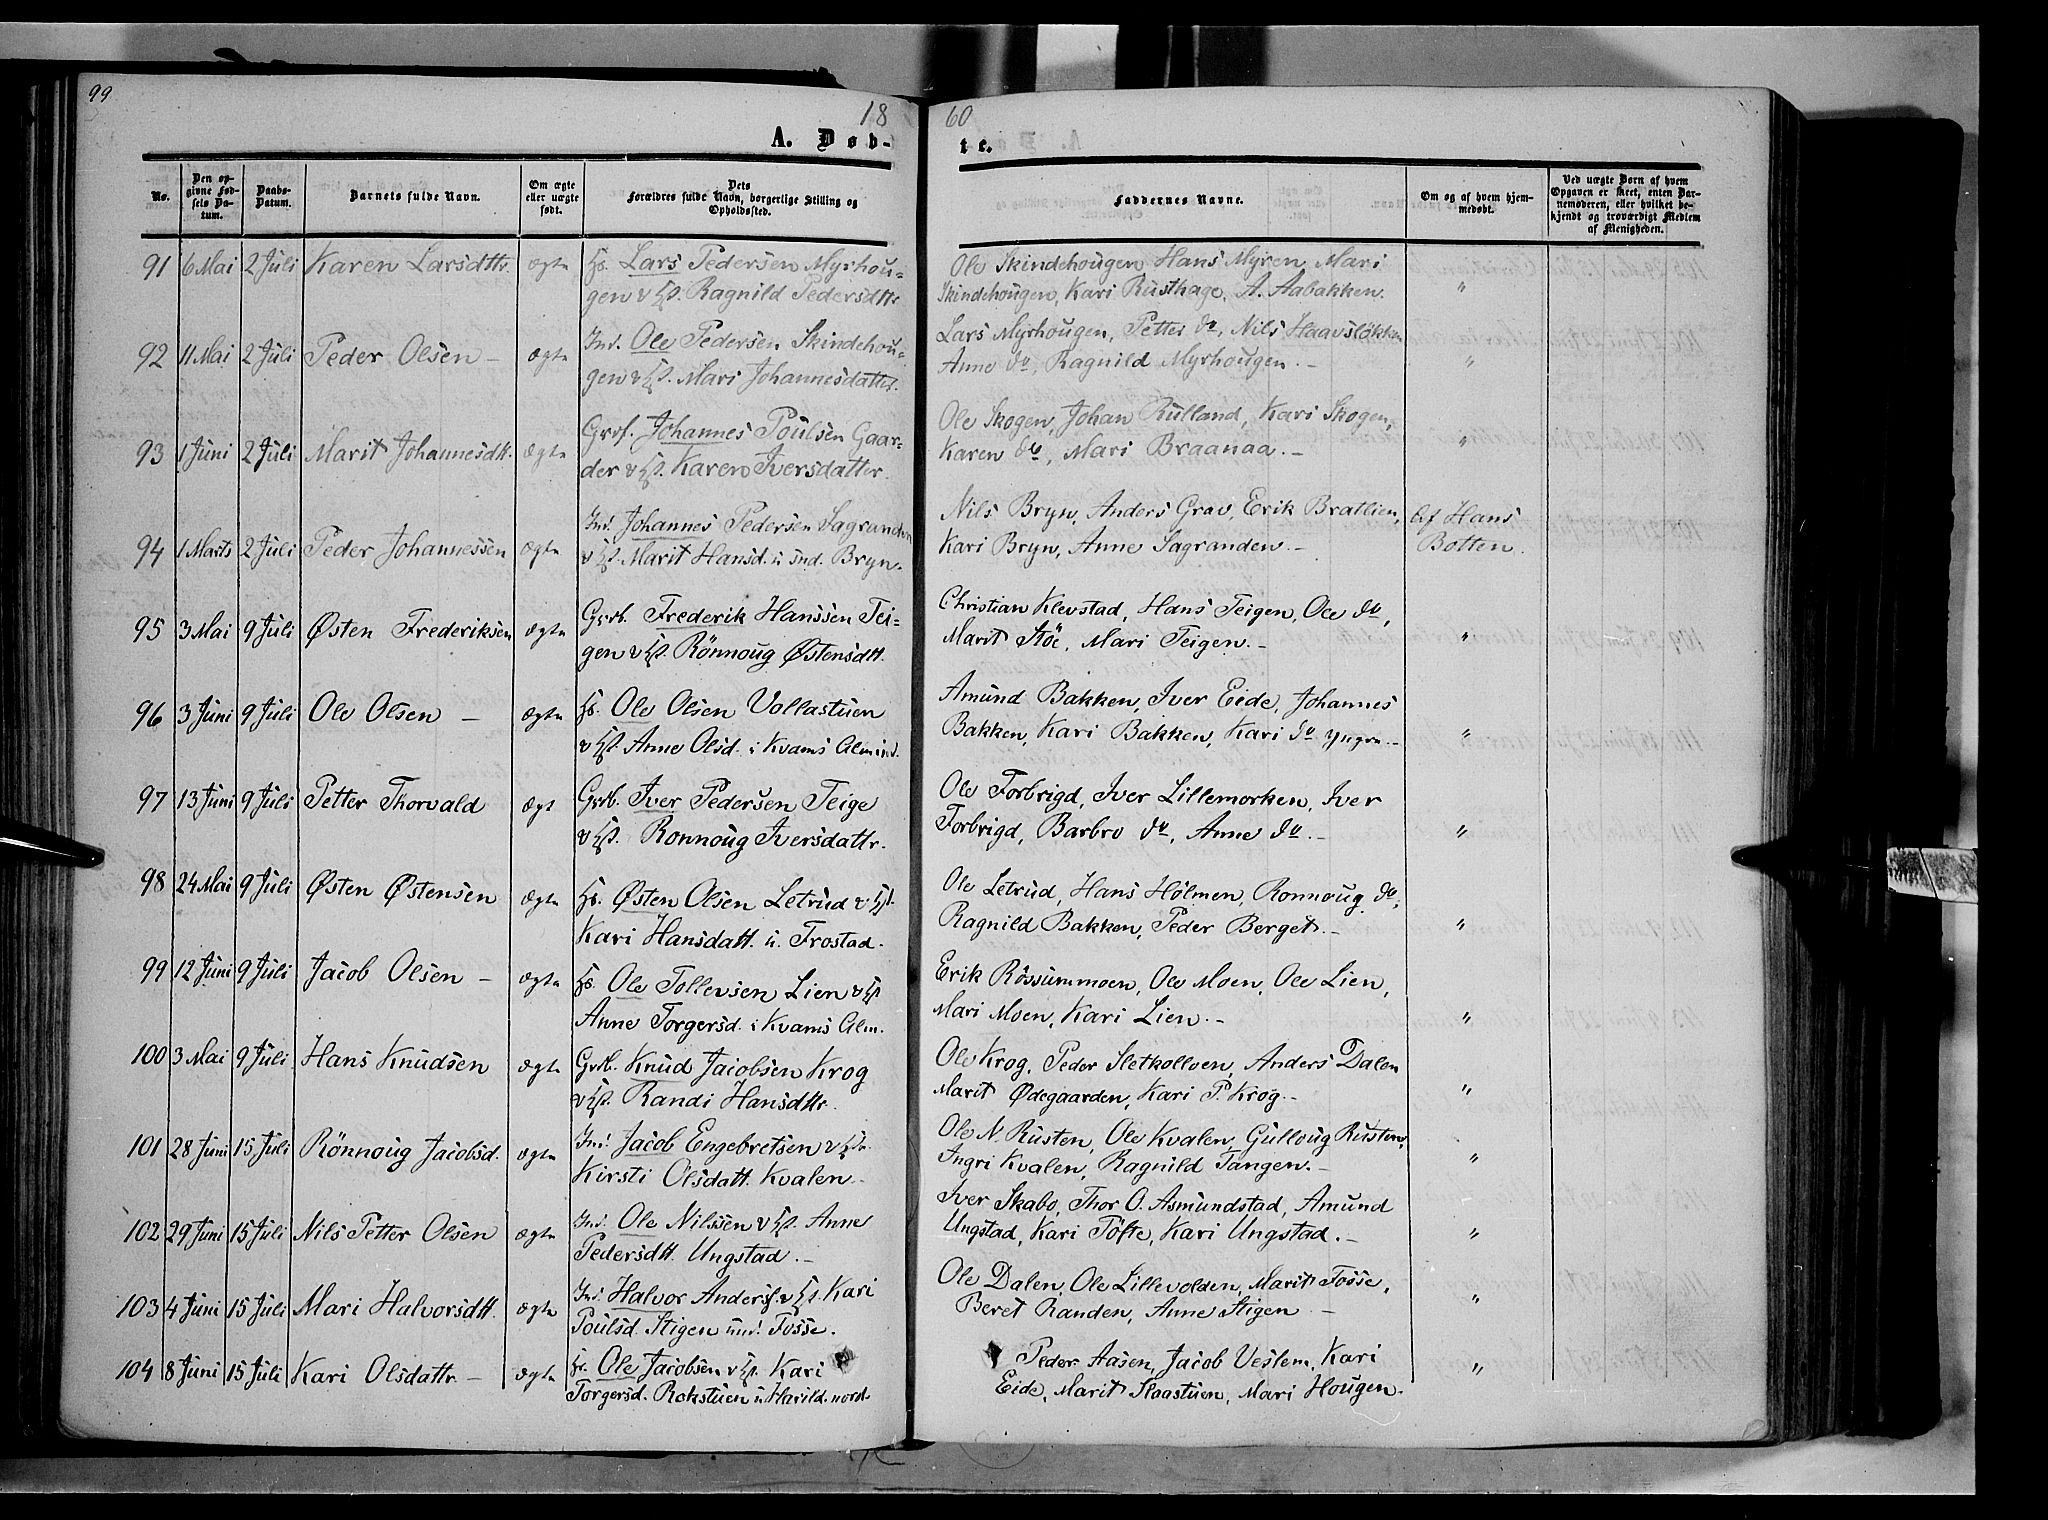 99
18 60
A. Døb-
te.
No.
Den op-
givne Fød-
sels Da-
tum.
Daabs-
Datum.
Barnets fulde Navn.
Om ægte
eller uægte
født.
Dets
Forældres fulde Navn, borgerlige Stilling og
Opholdssted.
Faddernes Navne.
Om og af hvem hjem-
medøbt.
Ved uægte Børn af hvem
Opgaven er skeet, enten Bar-
nemoderen, eller hvilket be-
kjendt og troværdigt Medlem
af Menigheden.
91 6 Mai 2 Juli Karen Larsdttr. ægte Hs. Lars Pedersen Myrhou-
gen v Hst. Ragnild Pedersdttr
Ole Skindehougen, Hans Myren, Mari
Skindehougen, Kari Rusthage, A. Aabakken. "
92 11 Mai 2 Juli Peder Olsen – ægte Ind. Ole Pedersen Skindehou-
gen v Hst. Mari Johannesdatter.
Lars Myrhougen, Petter do, Nils Haavsløkken
Anne do, Ragnild Myrhougen. – "
93 1 Juni 2 Juli Marit Johannesdtt. ægte Grdf. Johannes Poulsen Gaar-
der v Hst. Karen Iversdatter.
Ole Skogen, Johan Rulland, Kari Skogen,
Karen do, Mari Braanaa. – "
94 1 Marts 2 Juli Peder Johannessen ægte Ind. Johannes Pedersen Sagranden
v Hst. Marit Hansd. u und. Bryn.
Nils Bryn, Anders Grav, Erik Bratlien, Af Hans
Kari Bryn, Anne Sagranden. – Botten.
95 3 Mai 9 Juli Østen Frederiksen ægte Grdb. Frederik Hanssen Tei-
gen v Hst. Rönnoug Østensdtt.
Christian Klevstad, Hans Teigen, Ole do,
Marit Stöe, Mari Teigen. – "
96 3 Juni 9 Juli Ole Olsen – ægte Hs. Ole Olsen Vollastuen
v Hst. Anne Olsd. i Kvams Almind.
Amund Bakken, Iver Eide, Johannes
Bakken, Kari Bakken, Kari do yngre. – "
97 13 Juni 9 Juli Petter Thorvald ægt Grdb. Iver Pedersen Teige
v Hst. Ronnoug Iversdattr.
Ole Forbrigd, Iver Lillemorken, Iver
Forbrigd, Barbro do, Anne do. – "
98 24 Mai 9 Juli Østen Østensen ægte Hs. Østen Olsen Letrud v Hst.
Kari Hansdatt. u. Frostad.
Ole Letrud, Hans Holmen, Ronnoug do,
Ragnild Bakken, Peder Berget. – "
99 12 Juni 9 Juli Jacob Olsen – ægte Hs. Ole Tollevsen Lien v Hst
Anne Torgersd. i Kvams Alm.
Erik Rössummoen, Ole Moen, Ole Lien,
Mari Moen, Kari Lien. – "
100 3 Mai 9 Juli Hans Knudsen ægte Grdb. Knud Jacobsen Krog
v Hst. Randi Hansdttr.
Ole Krog, Peder Sletkollven, Anders Dalen
Marit Ødegaarden, Kari P. Krog. – "
101 28 Juni 15 Juli Rönnoug Jacobsd. ægte Ind. Jacob Engebretsen v Hst.
Kirsti Olsdatt. Kvalen.
Ole N. Rusten, Ole Kvalen, Gulloug Rusten,
Ingri Kvalen, Ragnild Tangen. – "
102 29 Juni 15 Juli Nils Petter Olsen ægte Ind. Ole Nilssen v Hst. Anne
Pedersdtt. Ungstad. –
Iver Skabo, Thor O. Asmundstad, Amund
Ungstad, Kari Töfte, Kari Ungstad. – "
103 4 Juni 15 Juli Mari Halvorsdtt. ægte Ind. Halvor Andersf. v Hst. Kari
Poulsd. Stigen und. Fosse.
Ole Dalen, Ole Lillevolden, Marit Fosse,
Beret Randen, Anne Stigen – "
104 8 Juni 15 Juli Kari Olsdattr. – ægte Hs. Ole Jacobsen v Hst. Kari
Torgersd. Rokstuen u Harild. nord.
Peder Aasen, Jacob Veslem, Kari
Eide, Marit Slaastuen, Mari Hougen. "